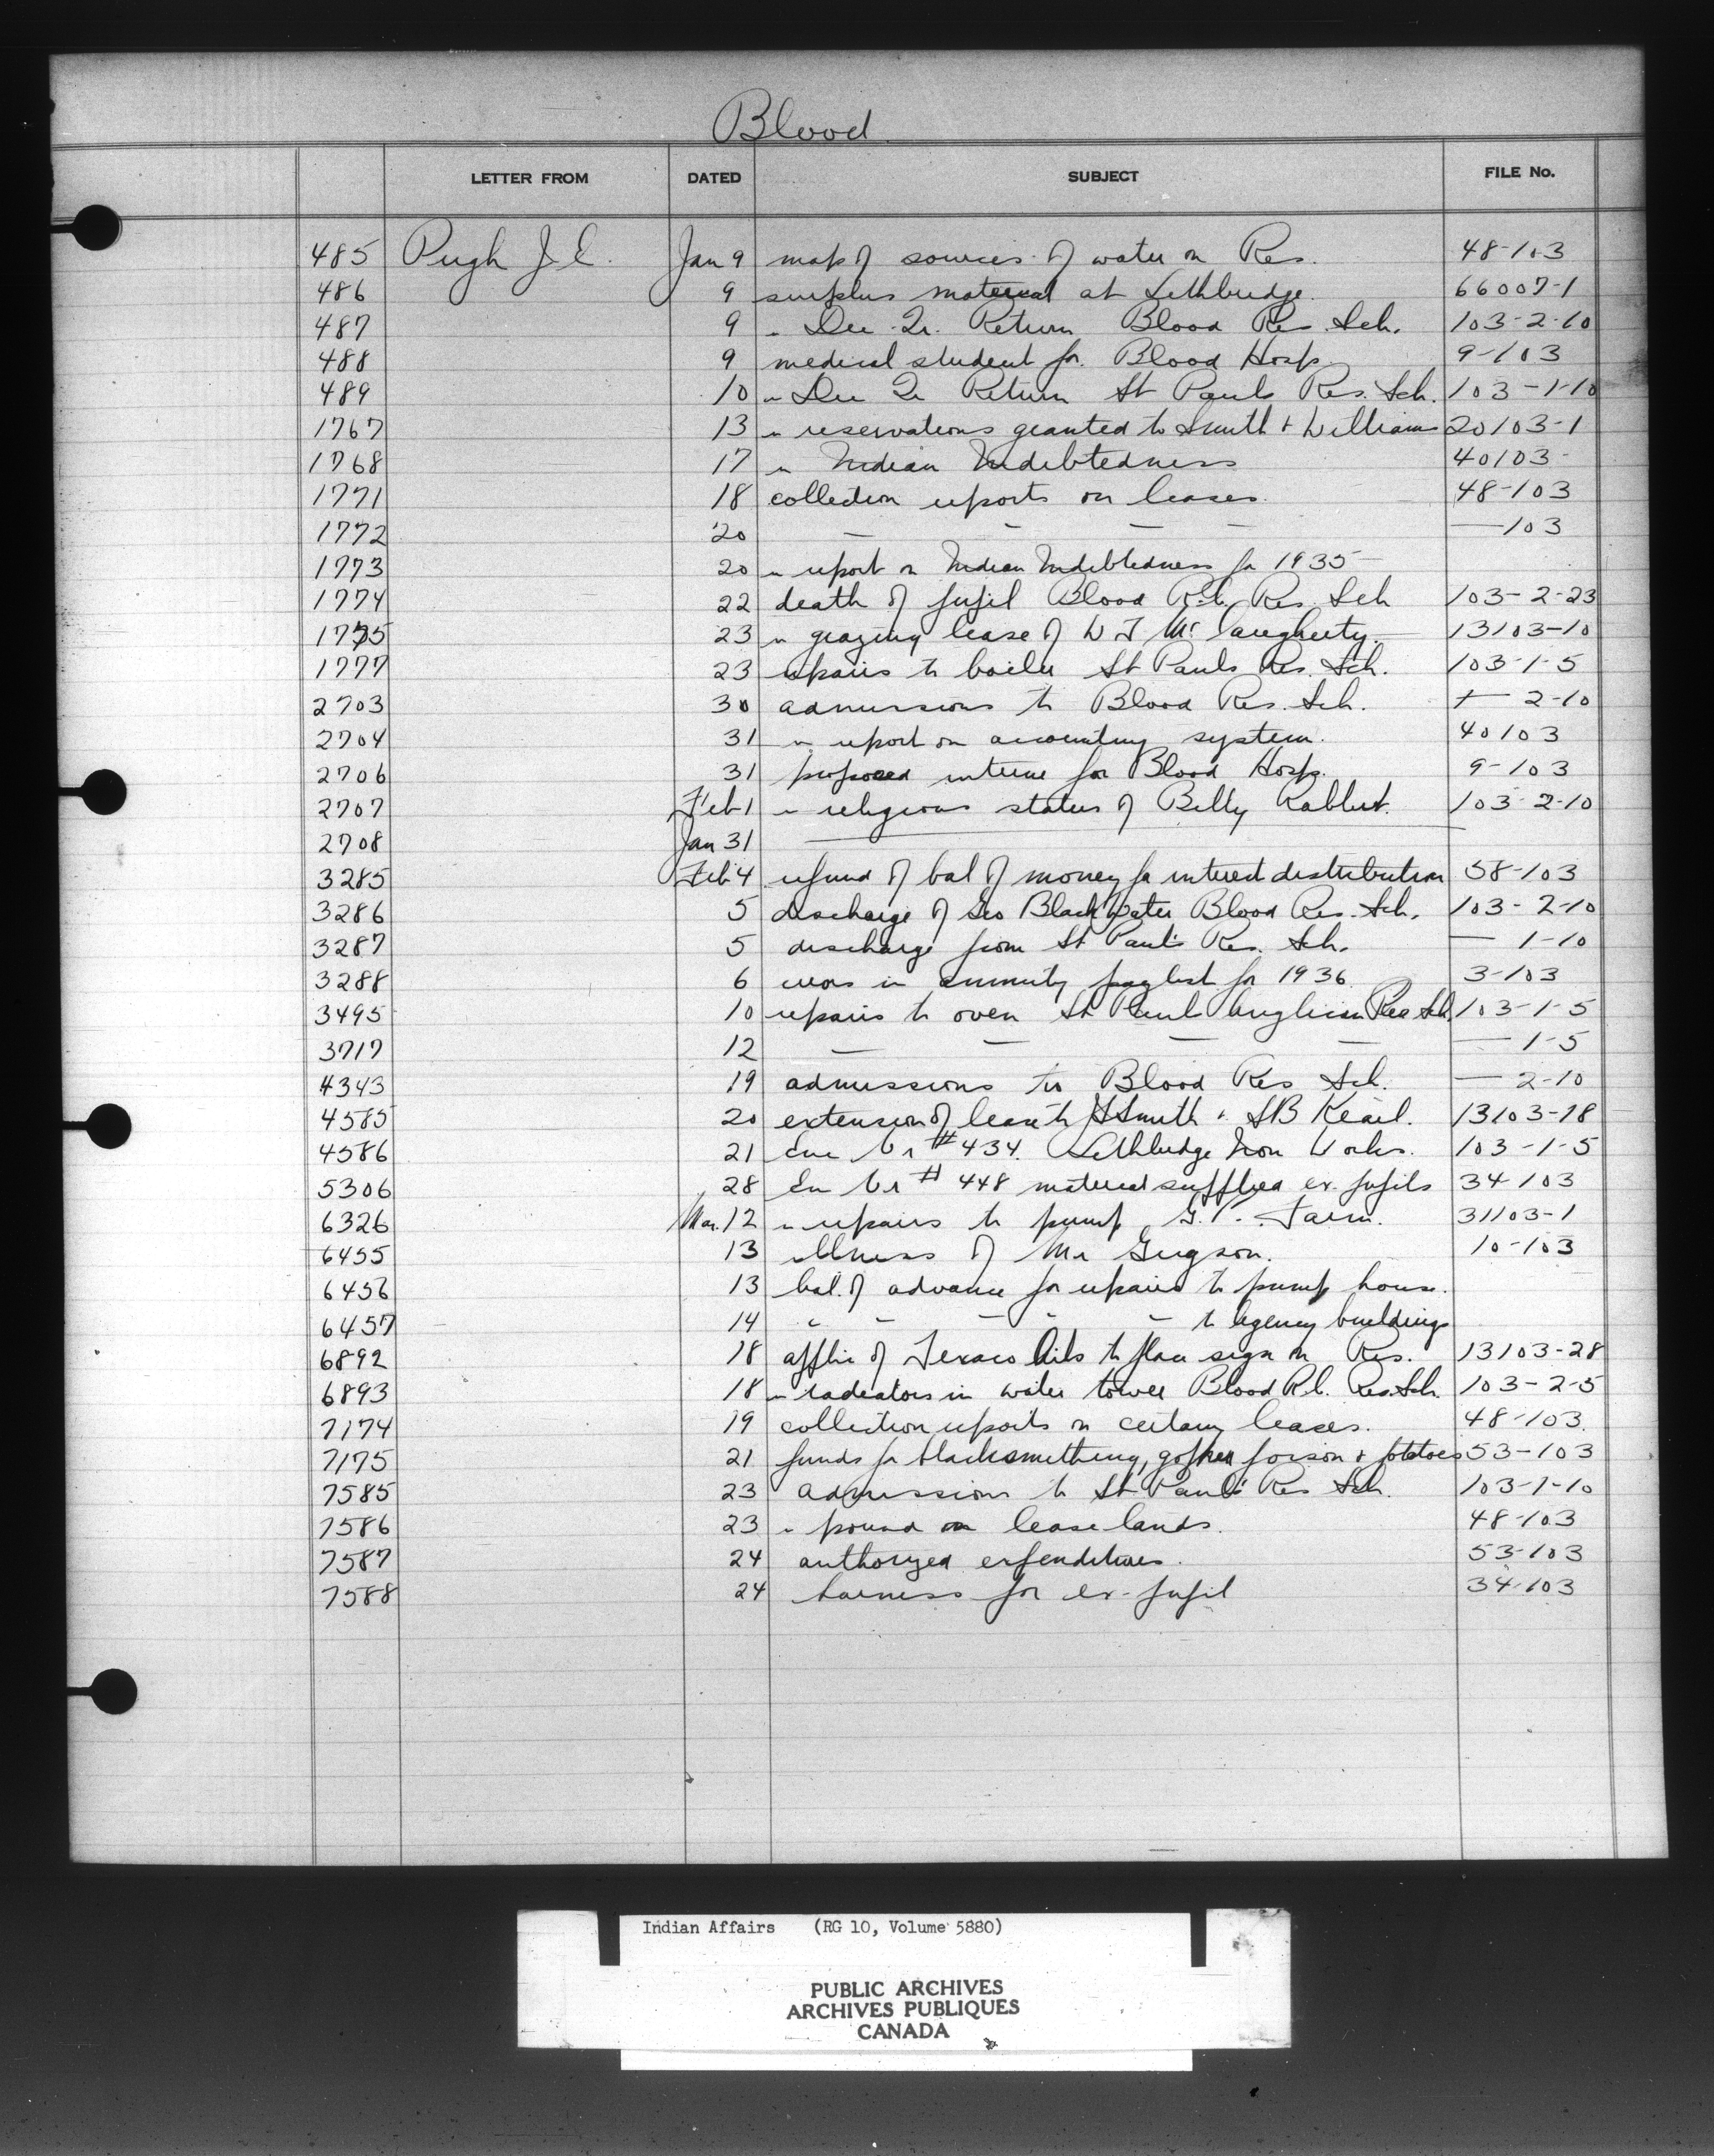 Blood
LETTER FROM DATED SUBJECT FILE No.
485 Pugh J.E. Jan 9 map of sources of water on Res. 48-103
486 9 surplus material at Lethbridge. 66007-1
487 9 " Dec. Qr. Return Blood Res. Sch. 103-2-10
488 9 medical student for Blood Hosp. 9-103
489 10 " Dec Qr Return St Pauls Res. Sch. 103-1-10
1767 13 " reservations granted to Smith + Williams 20103-1
1768 17 " Indian Indebtedness 40103-
1771 18 collection reports on leases. 48-103
1772 20 — — — — — 103
1773 20 " report on Indian Indebtedness for 1935 —
1774 22 death of pupil Blood R.C. Res. Sch 103-2-23
1775 23 " grazing lease of W T McCaugherty. 13103-10
1777 23 repairs to boiler St Pauls Res. Sch. 103-1-5
2703 30 admissions to Blood Res. Sch. — 2-10
2704 31 " report on accounting system. 40103
2706 31 proposed interne for Blood Hosp. 9-103
2707 Feb 1 " religious status of Billy Rabbit. 103-2-10
2708 Jan 31 —
3285 Feb 4 refund of bal of money for interest distribution 58-103
3286 5 discharge of Geo Black Water Blood Res. Sch. 103-2-10
3287 5 discharge from St Paul's Res. Sch. — 1-10
3288 6 errors in annuity paylist for 1936 3-103
3495 10 repairs to oven St Paul Anglican Res Sch. 103-1-5
3717 12 — — — — — 1-5
4343 19 admissions to Blood Res Sch. — 2-10
4585 20 extension of lease to Smith & SB Kearl. 13103-18
4586 21 Enc Vr # 434. Lethbridge Iron Works. 103-1-5
5306 28 Enc Vr # 448 material supplied ex. pupils 34-103
6326 Mar. 12 " repairs to pump Farm. 31103-1
6455 13 illness of Mr 10-103
6456 13 bal. of advance for repairs to pump house.
6457 14 " " — " — to agency buildings
6892 18 applic of Texaco Oils to place sign on Res. 13103-28
6893 18 " radiators in water tower Blood R.C. Res. Sch. 103-2-5
7174 19 collection reports on certain leases. 48-103.
7175 21 funds for blacksmithing, gopher poison & potatoes 53-103
7585 23 admissions to St Paul's Res Sch. 103-1-10
7586 23 " pound on lease lands. 48-103
7587 24 authorized expenditures. 53-103
7588 24 harness for ex-pupil 34-103
Indian Affairs (RG 10, Volume 5880)
PUBLIC ARCHIVES
ARCHIVES PUBLIQUES
CANADA